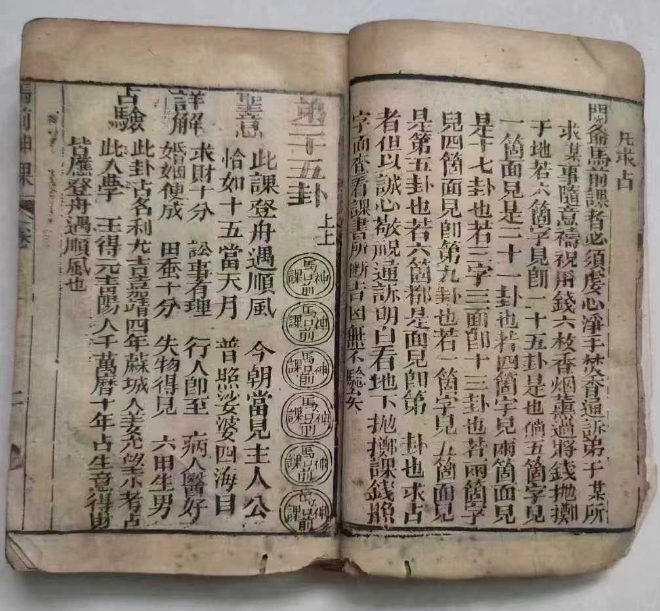 凡求占
關爺馬前課者必須虔心淨手焚香通訴弟子某所
求某事隨意禱祝用錢六枚香烟薰過將錢拋擲
于地若六箇字見卽一十五卦是也倘五箇字見
一箇面見是二十一卦也若四箇字見兩箇面見
是十七卦也若三字三面卽十三卦也若兩箇字
見四箇面見卽第九卦也若一箇字見五箇面見
是第五卦也若六箇都是面見卽第 卦也求占
者但以誠心敬祝通訴明白看地下拋擲課錢照
字面查看課書所斷吉凶無不驗矣
第十五卦 上上
馬前神課
馬前神課
馬前神課
馬前神課
馬前神課
馬前神課
聖意 此課登舟遇順風 今朝當見主人公
恰如十五當天月 普照娑婆四海日
詳解 求財十分 訟事有理 行人卽至 病人醫好
婚姻便成 田蚕十分 失物得見 六甲生男
占驗 此卦占名利尤吉嘉靖四年蘇城人姜 望 考占
此入學 王得元青陽人于萬曆十年占生意得財
皆應登舟遇順風也
馬前神課 卷